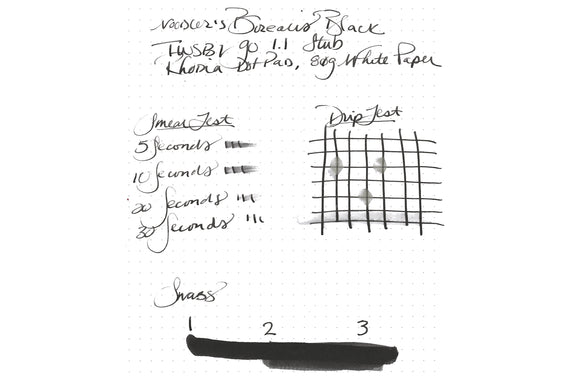 Noodler's Borealis Black
TWSBI go 1.1 Stub
Rhodia Dot Pad, 80g White Paper
Smear Test
Drip Test
5 Seconds
10 Seconds
20 Seconds
30 Seconds
Swabs
1 2 3